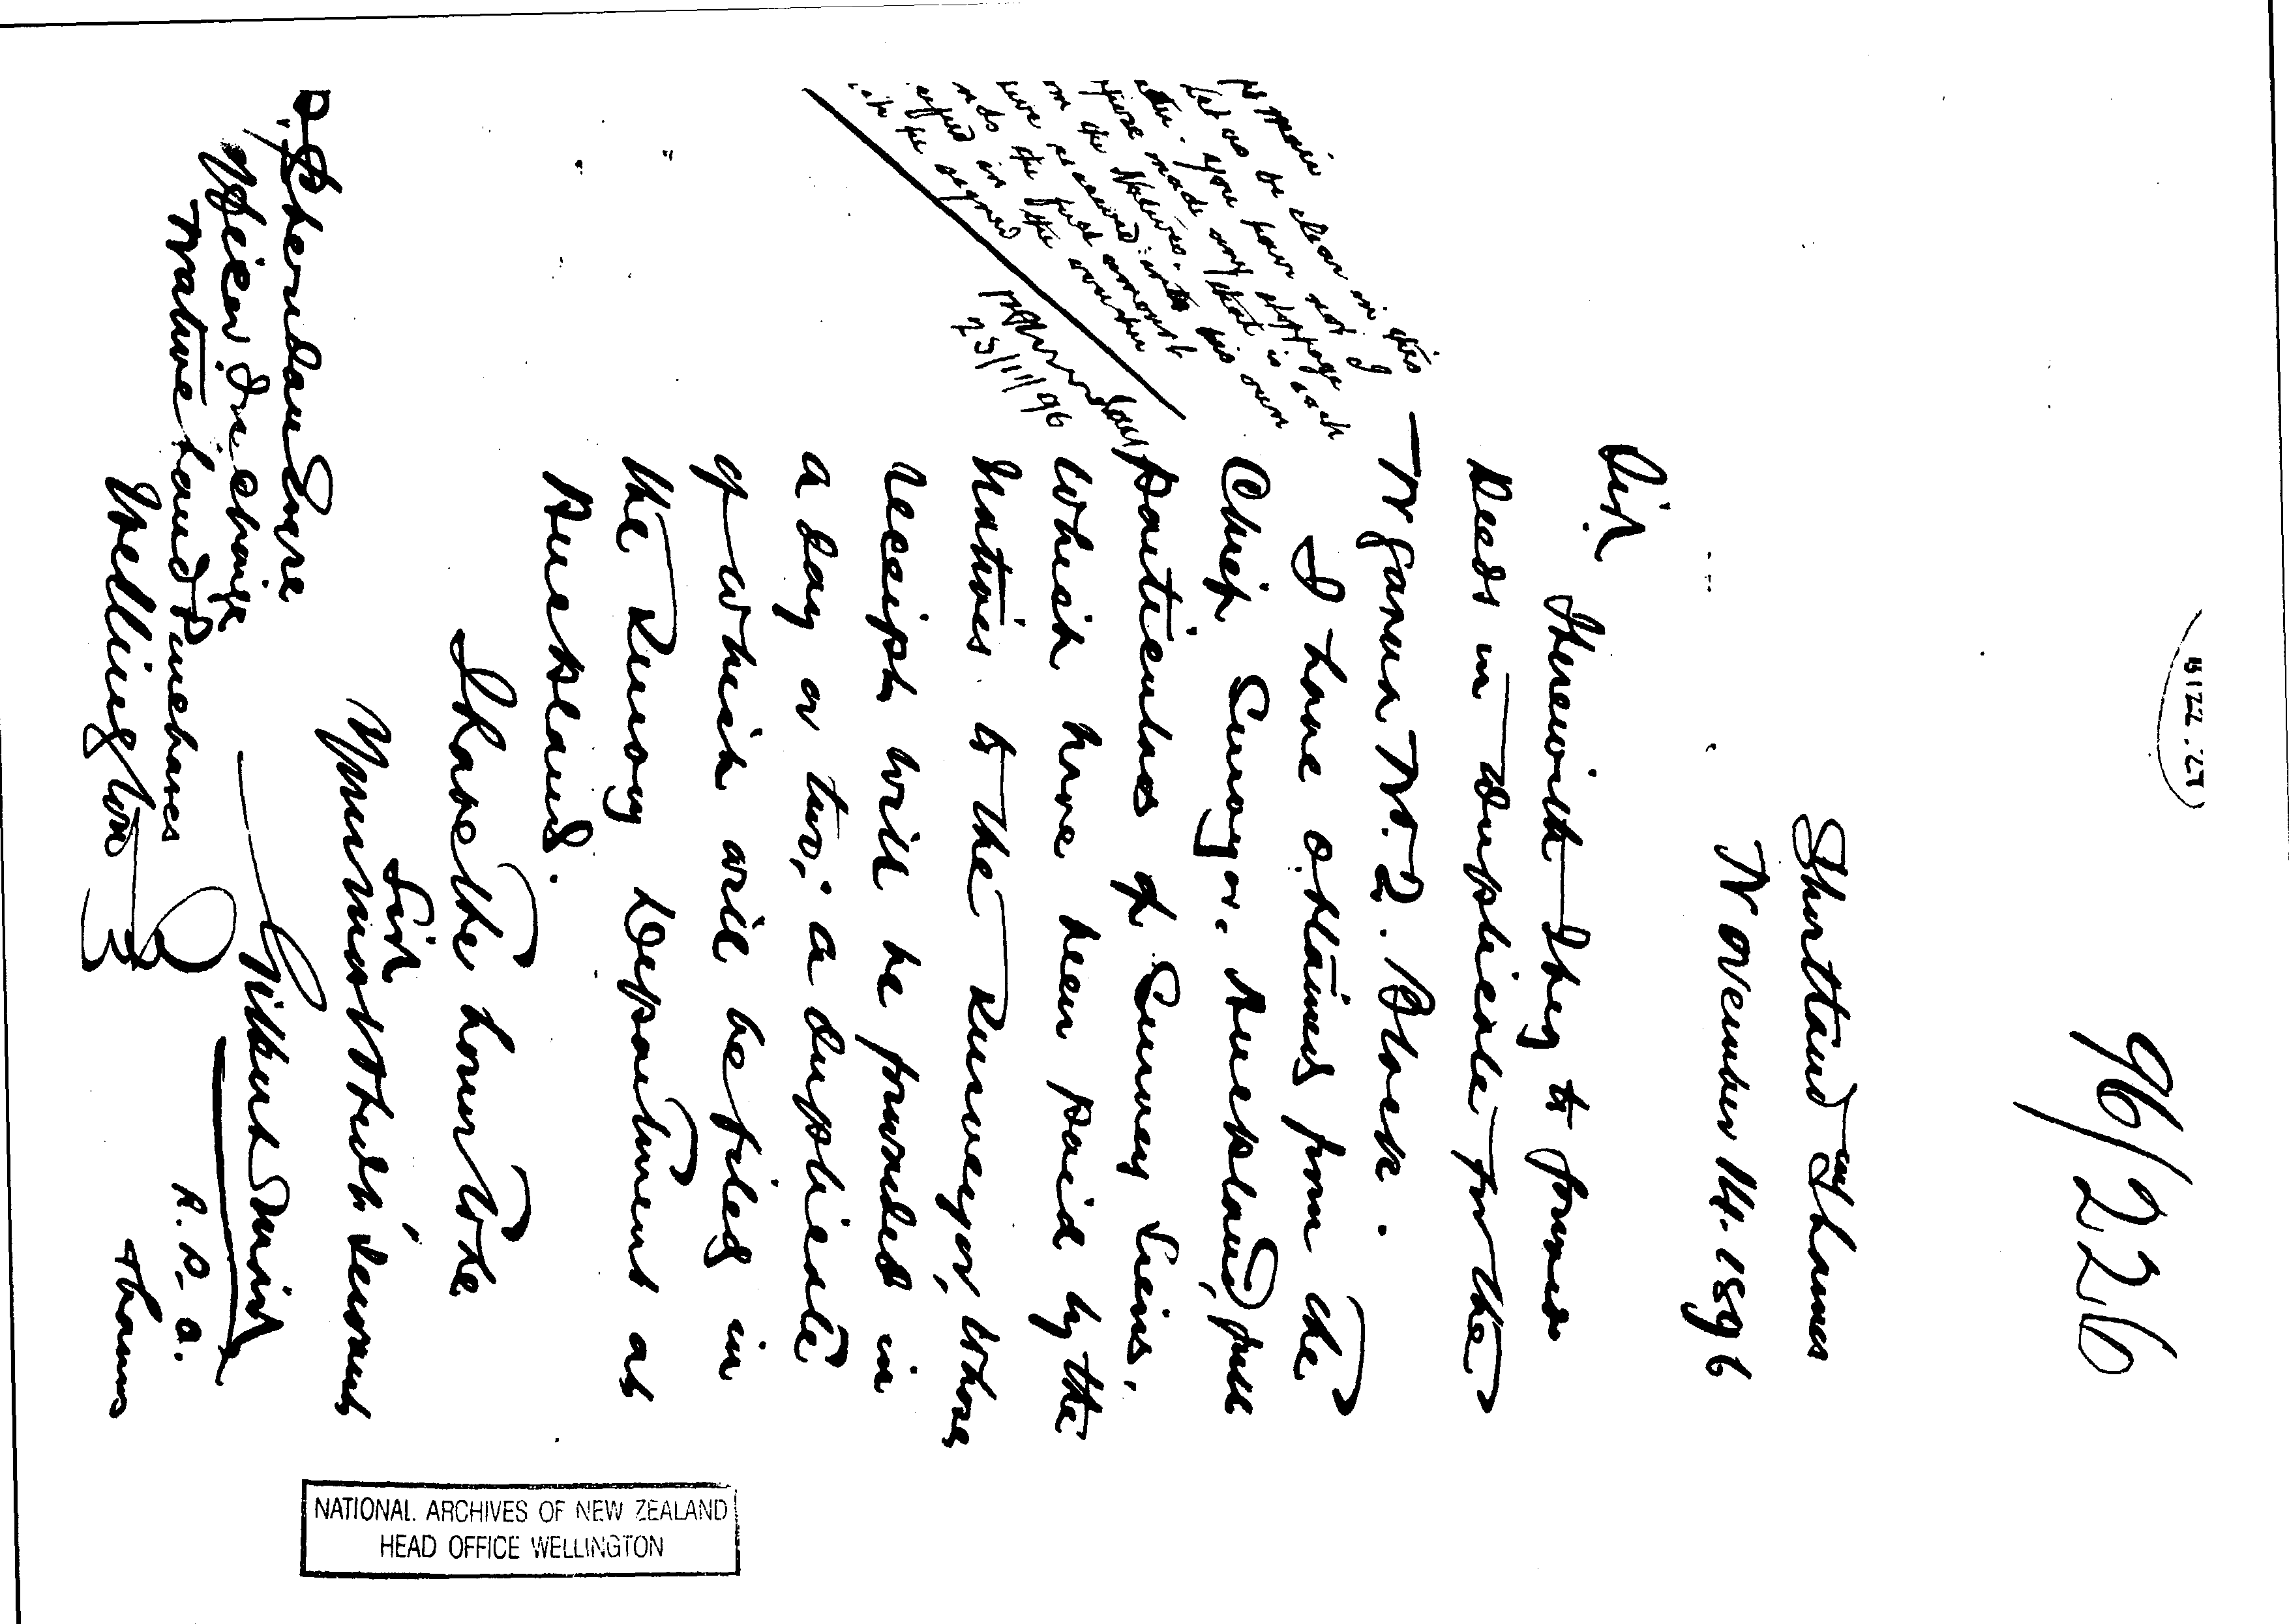 96/226
Shortland Thames
November 14. 1896
Sir
Herewith I beg to forward
Deeds in duplicate for the
No. 2. Block.
I have obtained from the
Chief Surveyor. Auckland, full
particulars of Survey Liens,
which have been paid by the
natives to the Surveyor, whose
receipt will be forwarded in
a day or two; a duplicate
of which will be filed in
the Survey Department at
Auckland.
I have the honor to be
Sir
Your most obedt servant
Gilbert Mair
L.P.O.
Thames
P. Sheridan Esqre
Officer in charge
Native Land Purchases
Wellington
Let us be clear in this
you have not I
made any stoppage
on the Natives. that is each
received his own
the full amount
in the voucher
he signed
23/11/96
NATIONAL ARCHIVES OF NEW ZEALAND
HEAD OFFICE WELLINGTON